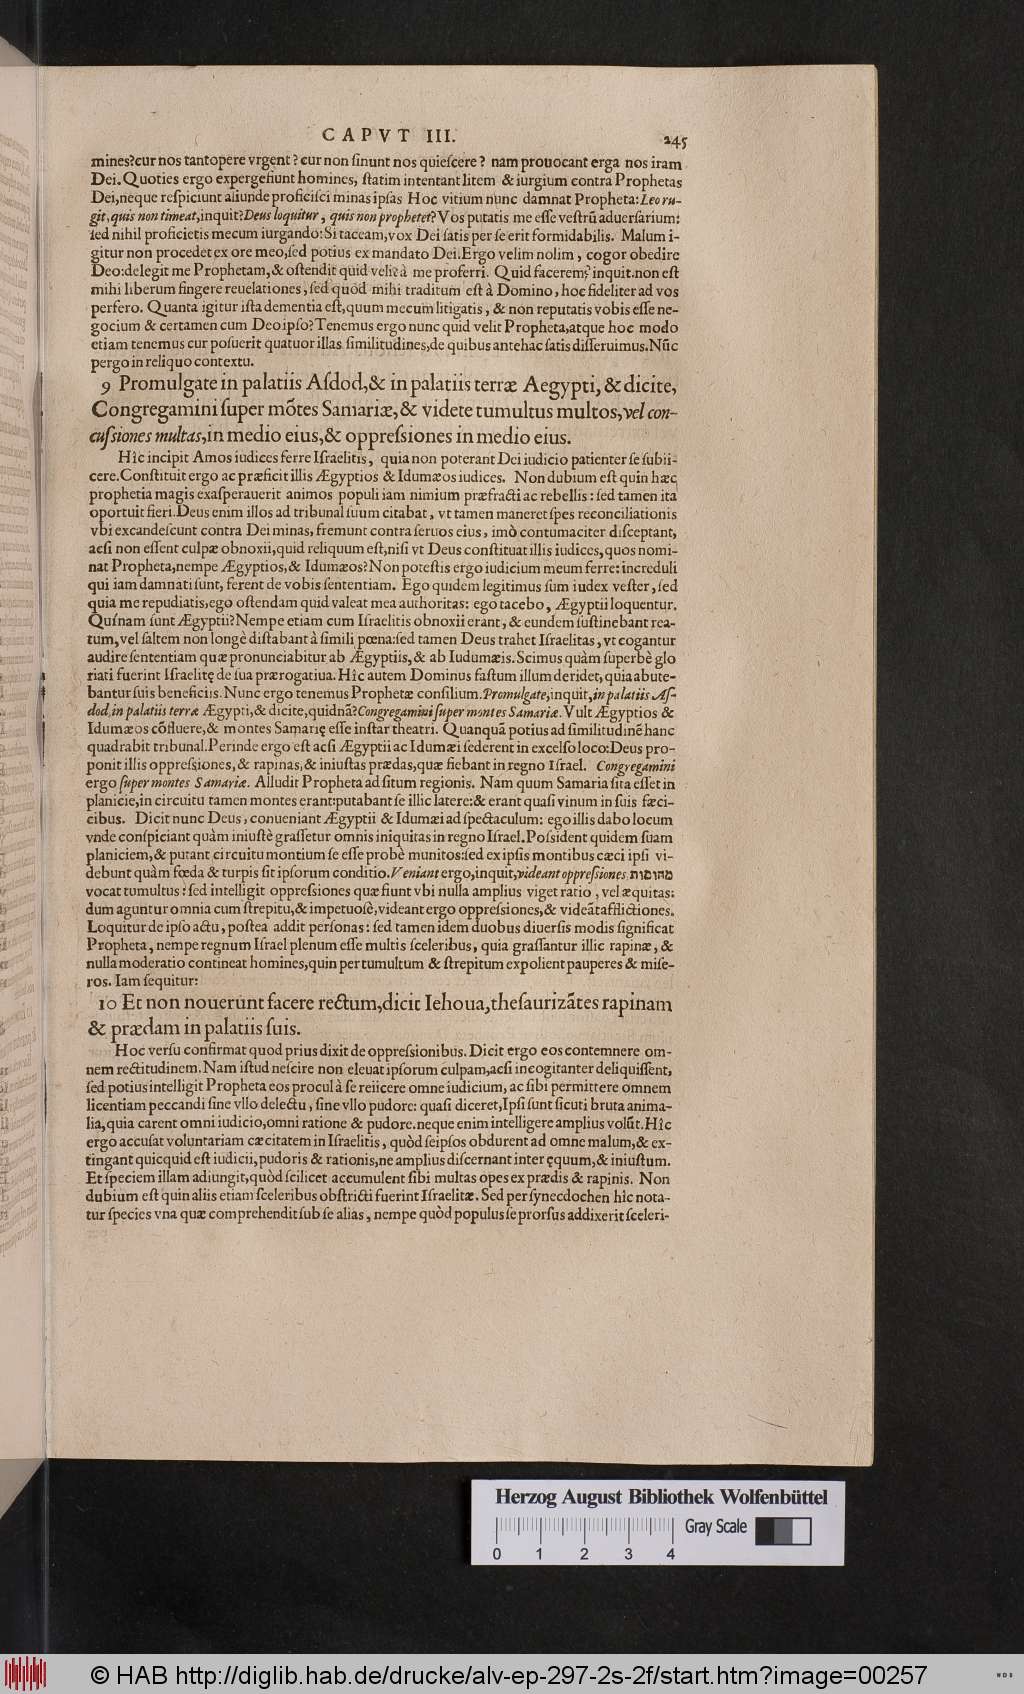 CAPVT III.
245
mines?cur nos tantopere vrgent? cur non ſinunt nos quieſcere? nam prouocant erga nos iram
Dei. Quoties ergo expergefiunt homines, ſtatim intentant litem & iurgium contra Prophetas
Dei,neque reſpiciunt aliunde proficiſci minas ipſas Hoc vitium nunc damnat Propheta: Leo ru-
git,quis non timeat,inquit?Deus loquitur, quis non prophetet? Vos putatis me eſſe veſtrũ aduerſarium:
ſed nihil proficietis mecum iurgando: Si taceam,vox Dei ſatis per ſe erit formidabilis. Malum i-
gitur non procedet ex ore meo,ſed potius ex mandato Dei.Ergo velim nolim, cogor obedire
Deo:delegit me Prophetam,& oſtendit quid velit à me proferri. Quid facerem? inquit.non eſt
mihi liberum fingere reuelationes, ſed quod mihi traditum eſt à Domino, hoc fideliter ad vos
perfero. Quanta igitur iſta dementia eſt,quum mecum litigatis, & non reputatis vobis eſſe ne-
gocium & certamen cum Deo ipſo? Tenemus ergo nunc quid velit Propheta,atque hoc modo
etiam tenemus cur poſuerit quatuor illas ſimilitudines,de quibus antehac ſatis diſſeruimus.Nũc
pergo in reliquo contextu.
9 Promulgate in palatiis Aſdod,& in palatiis terræ Aegypti, & dicite,
Congregamini ſuper mõtes Samariæ,& videte tumultus multos,vel con-
cuſsiones multas,in medio eius,& oppreſsiones in medio eius.
Hîc incipit Amos iudices ferre Iſraelitis, quia non poterant Dei iudicio patienter ſe ſubii-
cere.Conſtituit ergo ac præficit illis Ægyptios & Idumæos iudices. Non dubium eſt quin hæc
prophetia magis exaſperauerit animos populi iam nimium præfracti ac rebellis: ſed tamen ita
oportuit fieri.Deus enim illos ad tribunal ſuum citabat, vt tamen maneret ſpes reconciliationis
vbi excandeſcunt contra Dei minas, fremunt contra ſeruos eius, imò contumaciter diſceptant,
acſi non eſſent culpæ obnoxii,quid reliquum eſt,niſi vt Deus conſtituat illis iudices,quos nomi-
nat Propheta,nempe Ægyptios,& Idumæos? Non poteſtis ergo iudicium meum ferre: increduli
qui iam damnati ſunt, ferent de vobis ſententiam. Ego quidem legitimus ſum iudex veſter, ſed
quia me repudiatis,ego oſtendam quid valeat mea authoritas: ego tacebo, Ægyptii loquentur.
Quínam ſunt Ægyptii? Nempe etiam cum Iſraelitis obnoxii erant, & eundem ſuſtinebant rea-
tum,vel ſaltem non longè diſtabant à ſimili pœna:ſed tamen Deus trahet Iſraelitas, vt cogantur
audire ſententiam quæ pronunciabitur ab Ægyptiis,& ab Iudumæis.Scimus quàm ſuperbè glo
riati fuerint Iſraelitę de ſua prærogatiua. Hîc autem Dominus faſtum illum deridet, quia abute-
bantur ſuis beneficiis. Nunc ergo tenemus Prophetæ conſilium.Promulgate,inquit,in palatiis Aſ-
dod,in palatiis terræ Ægypti,& dicite,quidnã?Congregamini ſuper montes Samariæ. Vult Ægyptios &
Idumæos cõfluere,& montes Samarię eſſe inſtar theatri. Quanquã potius ad ſimilitudinẽ hanc
quadrabit tribunal.Perinde ergo eſt acſi Ægyptii ac Idumæi ſederent in excelſo loco:Deus pro-
ponit illis oppreſsiones,& rapinas,& iniuſtas prædas,quæ fiebant in regno Iſrael. Congregamini
ergo ſuper montes Samariæ. Alludit Propheta ad ſitum regionis. Nam quum Samaria ſita eſſet in
planicie,in circuitu tamen montes erant:putabant ſe illic latere:& erant quaſi vinum in ſuis fæci-
cibus. Dicit nunc Deus, conueniant Ægyptii & Idumæi ad ſpectaculum: ego illis dabo locum
vnde conſpiciant quàm iniuſtè graſſetur omnis iniquitas in regno Iſrael.Poſsident quidem ſuam
planiciem,& putant circuitu montium ſe eſſe probè munitos:ſed ex ipſis montibus cæci ipſi vi-
debunt quàm fœda & turpis ſit ipſorum conditio.Veniant ergo,inquit,videant oppreſsiones
vocat tumultus: ſed intelligit oppreſsiones quæ fiunt vbi nulla amplius viget ratio, vel æquitas:
dum aguntur omnia cum ſtrepitu,& impetuoſè,videant ergo oppreſsiones,& videãt afflictiones.
Loquitur de ipſo actu, poſtea addit perſonas: ſed tamen idem duobus diuerſis modis ſignificat
Propheta, nempe regnum Iſrael plenum eſſe multis ſceleribus, quia graſſantur illic rapinæ, &
nulla moderatio contineat homines,quin per tumultum & ſtrepitum expolient pauperes & miſe-
ros. Iam ſequitur:
10 Et non nouerunt facere rectum,dicit Iehoua,theſaurizãtes rapinam
& prædam in palatiis ſuis.
Hoc verſu confirmat quod prius dixit de oppreſsionibus. Dicit ergo eos contemnere om-
nem rectitudinem. Nam iſtud neſcire non eleuat ipſorum culpam,acſi incogitanter deliquiſſent,
ſed potius intelligit Propheta eos procul à ſe reiicere omne iudicium, ac ſibi permittere omnem
licentiam peccandi ſine vllo delectu, ſine vllo pudore: quaſi diceret,Ipſi ſunt ſicuti bruta anima-
lia,quia carent omni iudicio,omni ratione & pudore.neque enim intelligere amplius volũt.Hîc
ergo accuſat voluntariam cæcitatem in Iſraelitis, quòd ſeipſos obdurent ad omne malum,& ex-
tingant quicquid eſt iudicii,pudoris & rationis,ne amplius diſcernant inter ęquum,& iniuſtum.
Et ſpeciem illam adiungit,quòd ſcilicet accumulent ſibi multas opes ex prædis & rapinis. Non
dubium eſt quin aliis etiam ſceleribus obſtricti fuerint Iſraelitæ. Sed per ſynecdochen hîc nota-
tur ſpecies vna quæ comprehendit ſub ſe alias, nempe quòd populus ſe prorſus addixerit ſceleri-
Herzog August Bibliothek Wolfenbüttel
Gray Scale
0 1 2 3 4
© HAB http://diglib.hab.de/drucke/alv-ep-297-2s-2f/start.htm?image=00257